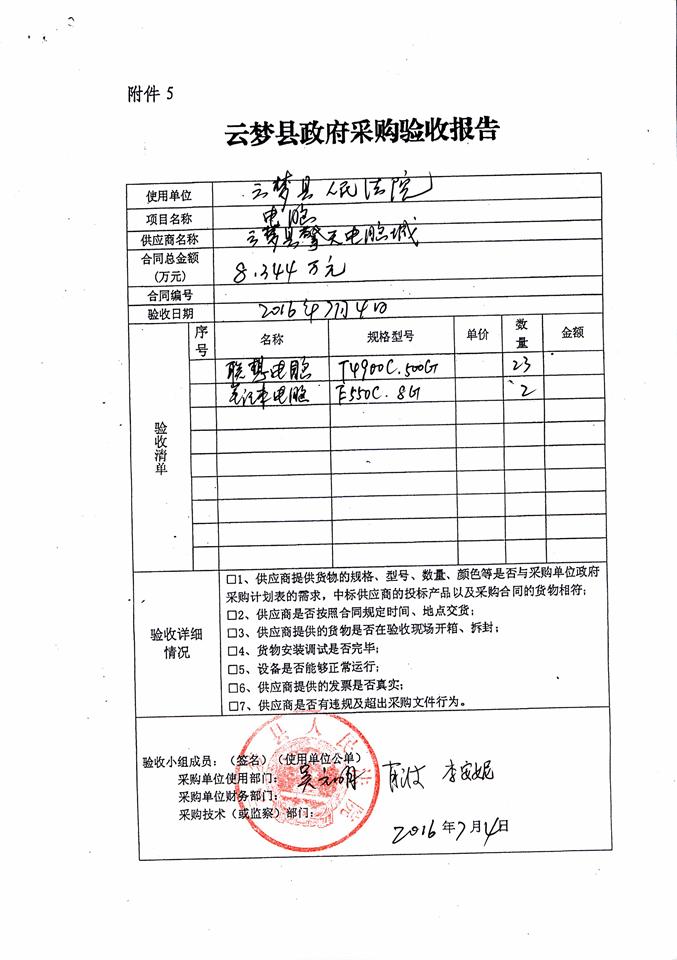 附件 5
云梦县政府采购验收报告
使用单位 云梦县人民法院
项目名称 电脑
供应商名称 云梦县擎天电脑城
合同总金额
(万元) 8.344 万元
合同编号
验收日期 2016年7月4日
验收清单
序号 名称 规格型号 单价 数量 金额
联想电脑 T4900C.500G 23
笔记本电脑 E550C.8G 2
验收详细
情况
□1、供应商提供货物的规格、型号、数量、颜色等是否与采购单位政府
采购计划表的需求,中标供应商的投标产品以及采购合同的货物相符;
□2、供应商是否按照合同规定时间、地点交货;
□3、供应商提供的货物是否在验收现场开箱、拆封;
□4、货物安装调试是否完毕;
□5、设备是否能够正常运行;
□6、供应商提供的发票是否真实;
□7、供应商是否有违规及超出采购文件行为。
验收小组成员:(签名)(使用单位公单)
采购单位使用部门:
李安妮
采购单位财务部门:
采购技术(或监察)部门:
2016年7月4日
县人民法院